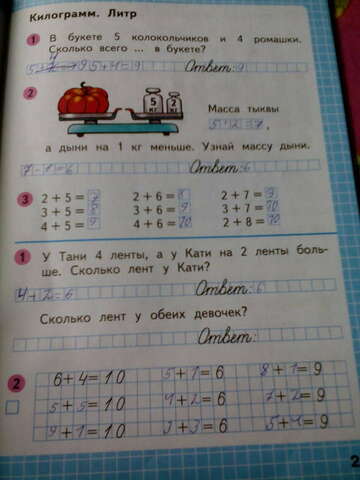 Килограмм. Литр
1 В букете 5 колокольчиков и 4 ромашки.
Сколько всего ... в букете?
5+4=9 Ответ: 9
2
5 кг 2 кг
Масса тыквы
5+2=7,
а дыни на 1 кг меньше. Узнай массу дыни.
7-1=6 Ответ: 6
3 2 + 5 = 7 2 + 6 = 8 2 + 7 = 9
3 + 5 = 8 3 + 6 = 9 3 + 7 = 10
4 + 5 = 9 4 + 6 = 10 2 + 8 = 10
1 У Тани 4 ленты, а у Кати на 2 ленты боль-
ше. Сколько лент у Кати?
4+2=6 Ответ: 6
Сколько лент у обеих девочек?
Ответ:
2 6+4=10 5+1=6 8+1=9
5+5=10 4+2=6 7+2=9
9+1=10 3+3=6 5+4=9
2